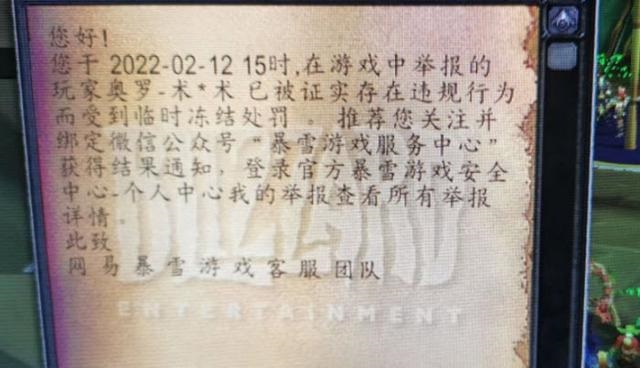 您好!
您于 2022-02-12 15时,在游戏中举报的
玩家奥罗-术*术 已被证实存在违规行为
而受到临时冻结处罚 。 推荐您关注并
绑定微信公众号“暴雪游戏服务中心”
获得结果通知，登录官方暴雪游戏安全
中心-个人中心我的举报查看所有举报
详情。
此致
网易暴雪游戏客服团队
BLIZZARD
ENTERTAINMENT